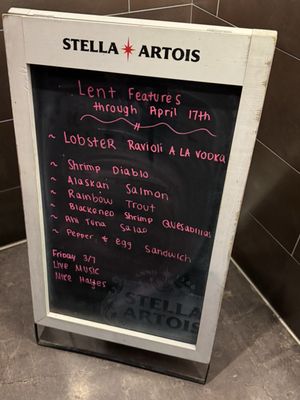 STELLA ARTOIS
Lent Features
through April 17th
~ Lobster Ravioli A LA VODKA
~ Shrimp Diablo
~ Alaskan Salmon
~ Rainbow Trout
~ Blackened Shrimp Quesadillas
~ Ahi Tuna Salad
~ Pepper & egg Sandwich
Friday 3/7
Live Music
Nick Hayes
STELLA
ARTOIS